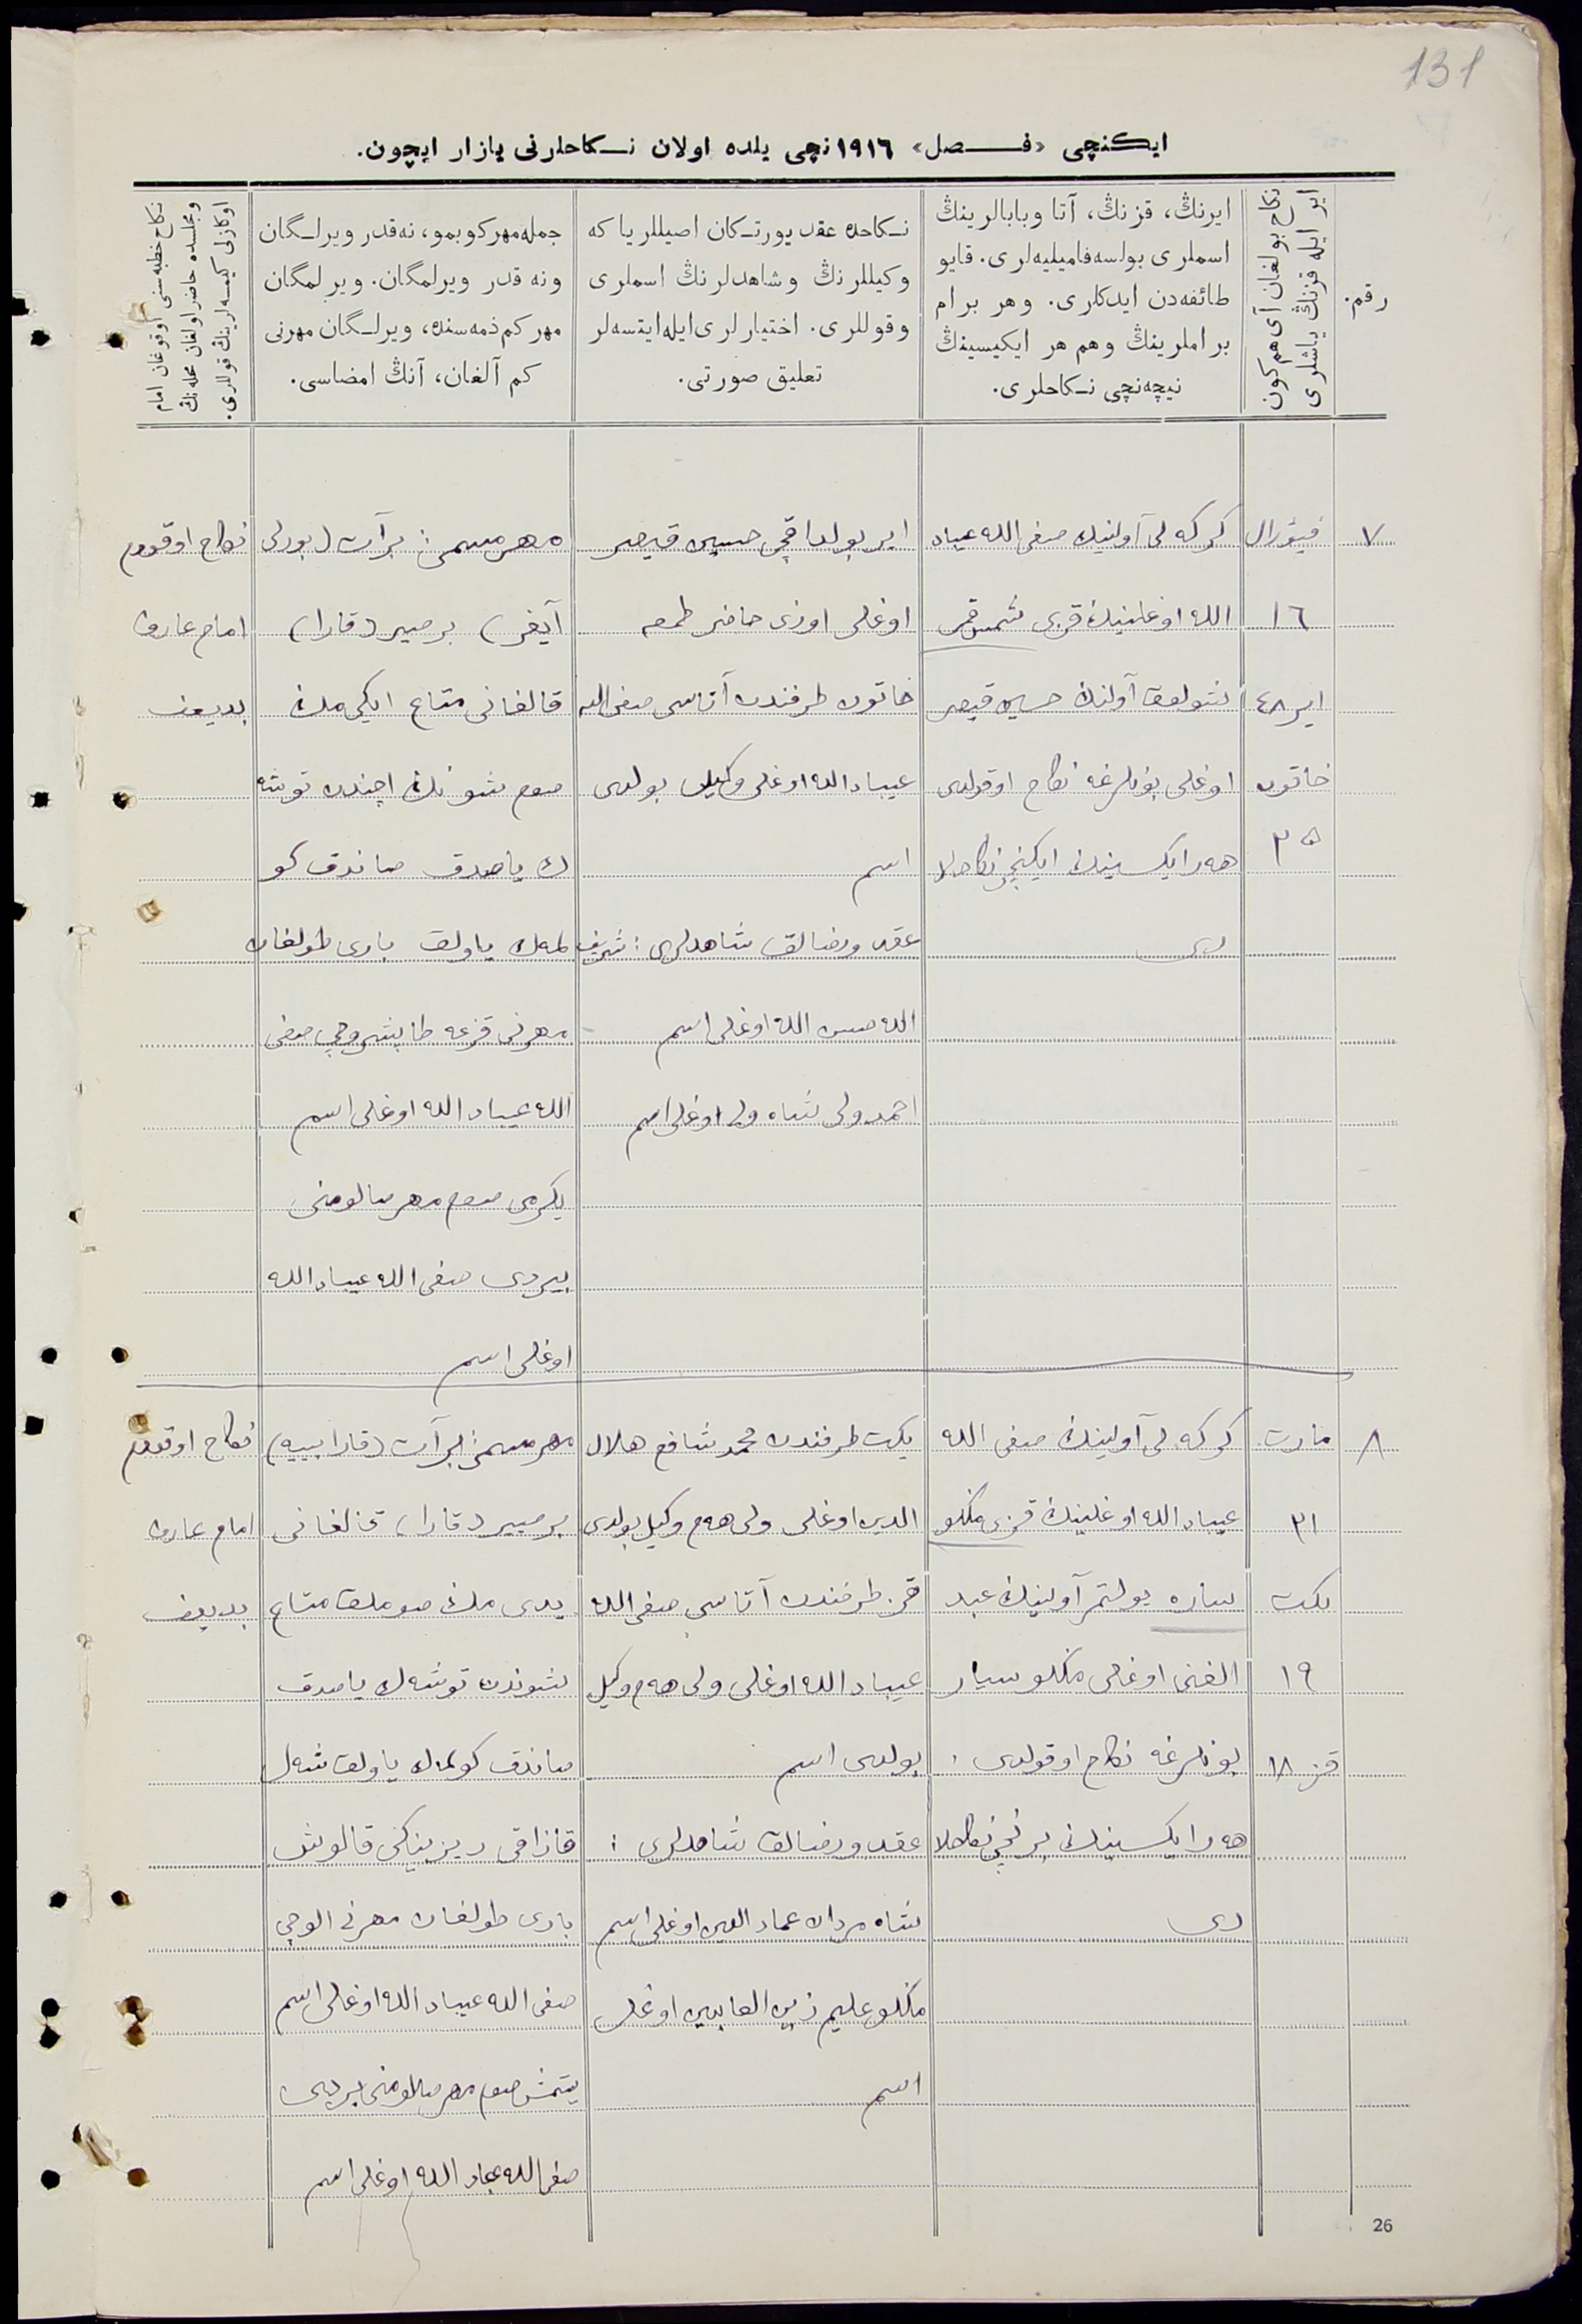 131
ایکنچی «فصل» ١٩١٦نچی یلده اولان نکاحلرنی یازار ایچون.
رقم.
نکاح بولغان آی هم کون
ایر ایله قزنڭ یاشلری
ایرنڭ، قزنڭ، آتا وبابالرینڭ
اسملری بولسه فامیلیه‌لری. قایو
طائفه‌دن ایدکلری. وهر برام
براملرینڭ وهم هر ایکیسینڭ
نیچه‌نچی نکاحلری.
نکاحده عقد یورتکان اصیللر یا که
وکیللرنڭ وشاهدلرنڭ اسملری
وقوللری. اختیارلری ایله ایتسه‌لر
تعلیق صورتی.
جمله مهر کوبمو، نه‌قدر ویرلگان
ونه قدر ویرلمگان. ویرلمگان
مهر کم ذمه‌سنده، ویرلگان مهرنی
کم آلغان، آنڭ امضاسی.
نکاح خطبه‌سنی اوقوغان امام
ومجلسده حاضر اولغان محله‌نڭ
اوکازلی کیمسه‌لرینڭ قوللری.
٧
فیورال
١٦
ایر ٤٨
خاتون
٣٥
کرکه لی آولینڭ صفی الله عیباد
الله اوغلینڭ قزی شمس قمر
شولوق آولنڭ حسین قیصر
اوغلی بونلرغه نکاح اوقولدی
هەر ایکسینڭ ایکنچی نکاحلا
ری
ایر بولداقچی حسین قیصر
اوغلی اوزی حاضر طمعه
خاتون طرفندن آتاسی صفی الله
عیباد الله اوغلی وکیل بولدی
اسم
عقد ورضالق شاهدلری: شریف
الله حسن الله اوغلی اسم
احمد ولی شاه ولی اوغلی اسم
مهر مسمی: برآت (بورلی
آیغر) بر صیر (قارا)
قالغانی متاع ایکی مڭ
صوم شونڭ اچنده توشه
ك یاصدق صاندق کو
لمەك یاولق باری طولغان
مهرنی قزغه طابشروچی صفی
الله عیباد الله اوغلی اسم
یکرمی صوم مهر صالومنی
بیردی صفی الله عیباد الله
اوغلی اسم
نکاح اوقودم
امام عارف
بدیعف
٨
مارت
٣١
یکت
١٩
قز ١٨
کرکه لی آولینڭ صفی الله
عیباد الله اوغلینڭ قزی منکلو
ساره یولتمر آولینڭ عبد
الغنی اوغلی منکلو سیار
بونلرغه نکاح اوقولدی.
هەر ایکسینڭ برنچی نکاحلا
ری
یکت طرفندن محمد شافع هلال
الدین اوغلی ولی هەم وکیل بولدی
قز طرفندن آتاسی صفی الله
عیباد الله اوغلی ولی هەم وکیل
بولدی اسم
عقد ورضالق شاهدلری:
شاه مردان عماد الدین اوغلی اسم
منکلو علیم زین العابدین اوغلی
اسم
مهر مسمی: برآت (قارا بییه)
بر صییر (قارا) قالغانی
یدی مڭ صوملق متاع
شوندن توشەك یاصدق
صاندق کولمەك یاولق شەل
قازاقی ریزینکی قالوش
باری طولغان مهرنی الوچی
صفی الله عیباد الله اوغلی اسم
یتمش صوم مهر صالومنی بردی
صفی الله عیباد الله اوغلی اسم
نکاح اوقودم
امام عارف
بدیعف
26